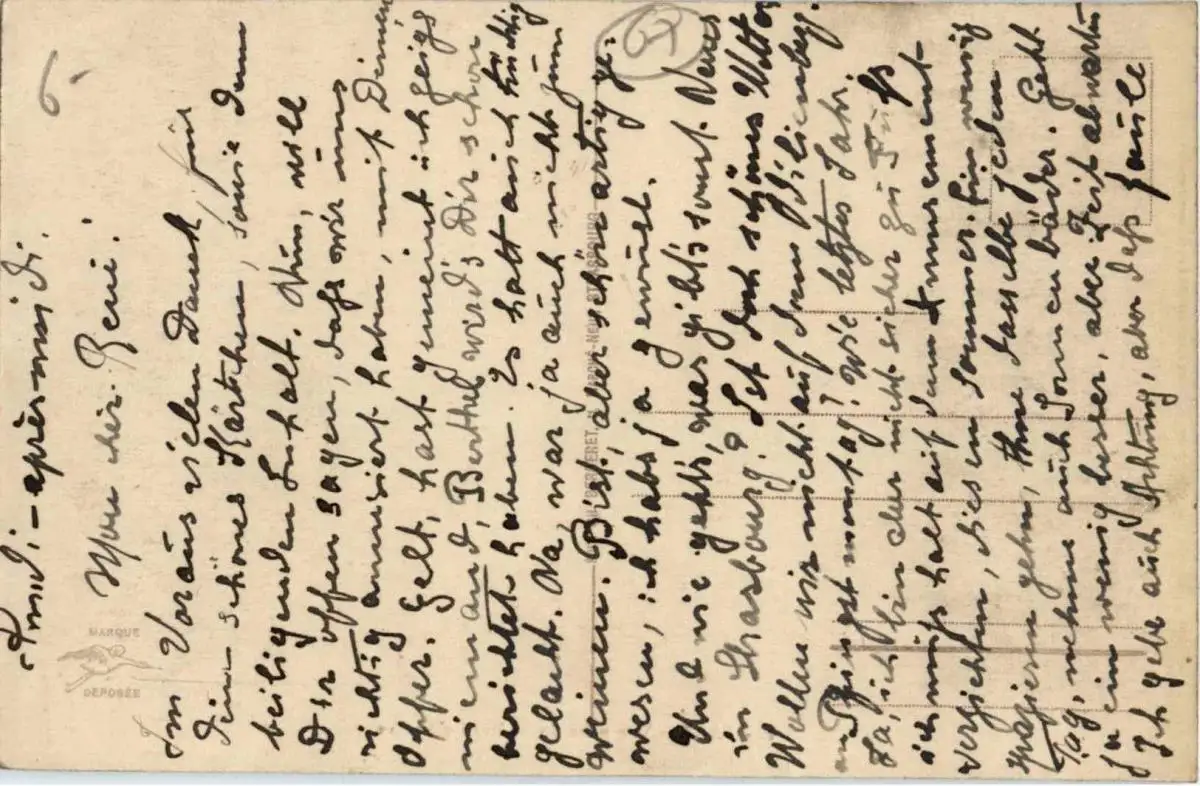 Lundi-après-midi.
Mon cher René!
Im Voraus vielen Dank, für
Dein schönes Kärtchen, sowie dem
beiligenden Inhalt. Nun, will
Dir offen sagen, dass wir uns
richtig amusiert haben, mit Deinem
Opfer. Gelt, hast gemeint ich zeigs
niemand, Berthel wird's Dir schon
berichtet haben. Es hatt auch tüchtig
gelacht. Na, war ja auch nicht zum
weinen. Bist, aber schön artig ge-
wesen, ich habs ja gewusst.
Und wie gehts, was gibt's sonst. Neues
in Strasbourg? Ist das schönes Wetter
Wollen wir nicht auf den Odilienberg.
an Pfingstmontag? Wie letztes Jahr.
Ja, ich bin aber nicht sicher zu Fuss
ich muss halt auf dem Amusement
verzichten, diesen Sommer. Ein wenig
spazieren gehn, thue dasselbe jeden
Tag, nehme auch Sonnenbäder. Geht
ja ein wenig besser, aber Zeit abwarten
Ich gebe auch Achtung, aber dass
faule
MARQUE
DEPOSÉE